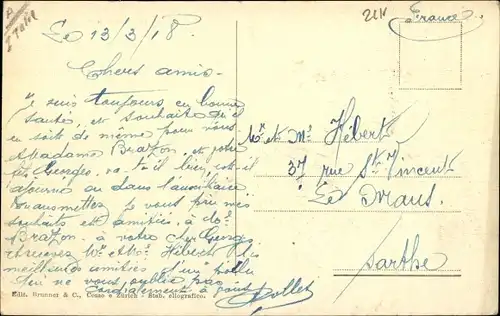 Le 13/3/18.
Chers amis
Je suis toujours en bonne
santé, et souhaite qu'il
en soit de même pour vous
et Madame Brazon, et votre
fils Georges. va-t-il bien, est-il
ajourné ou dans l'auxiliaire
Transmettez je vous prie mes
souhaits et amitiés à Mr
Brazon, à votre cher Georges
et recevez Mr et Mme Hébert les
meilleures amitiés d'un poilu
qui ne vous oublie pas
Cordialement à vous
Pollet
Edit. Brunner & C., Como e Zürich - Stab. eliografico.
France
Mr et Me Hébert
37 rue St Vincent
Le Mans.
Sarthe